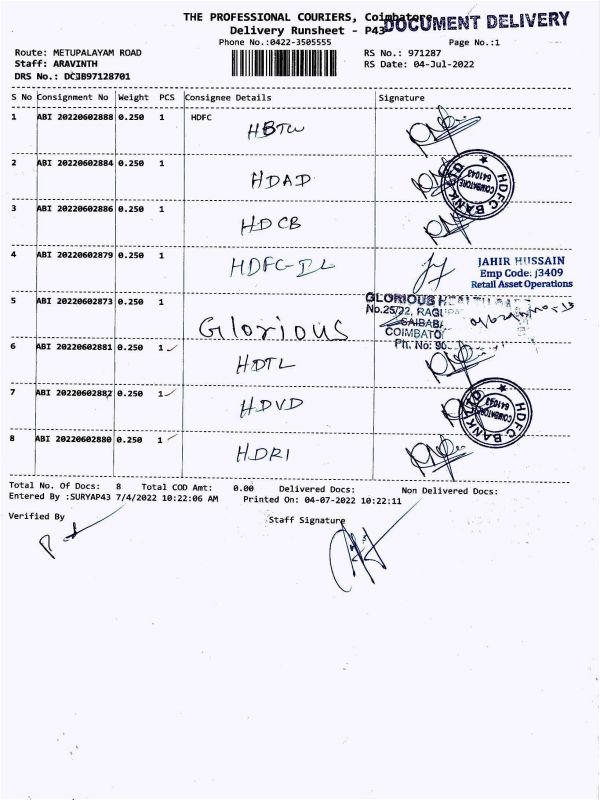 THE PROFESSIONAL COURIERS, Coimbatore
DOCUMENT DELIVERY
Delivery Runsheet - P43
Phone No.:0422-3505555
Page No.:1
Route: METUPALAYAM ROAD
RS No.: 971287
Staff: ARAVINTH
RS Date: 04-Jul-2022
DRS No.: DCJB97128701
S No Consignment No Weight PCS Consignee Details Signature
1 ABI 20220602888 0.250 1 HDFC
HBTW
2 ABI 20220602884 0.250 1
HDAD
HDFC BANK
COIMBATORE
641043
3 ABI 20220602886 0.250 1
HDCB
4 ABI 20220602879 0.250 1
HDFC-IL
JAHIR HUSSAIN
Emp Code: J3409
Retail Asset Operations
5 ABI 20220602873 0.250 1
Glorious
GLORIOUS
No.25/22,
SAIBABA
COIMBATO
Ph. No: 90
6 ABI 20220602881 0.250 1
HDTL
7 ABI 20220602882 0.250 1
HDVD
HDFC BANK
COIMBATORE
641043
8 ABI 20220602880 0.250 1
HDRI
Total No. Of Docs: 8 Total COD Amt: 0.00 Delivered Docs: Non Delivered Docs:
Entered By :SURYAP43 7/4/2022 10:22:06 AM Printed On: 04-07-2022 10:22:11
Verified By
Staff Signature